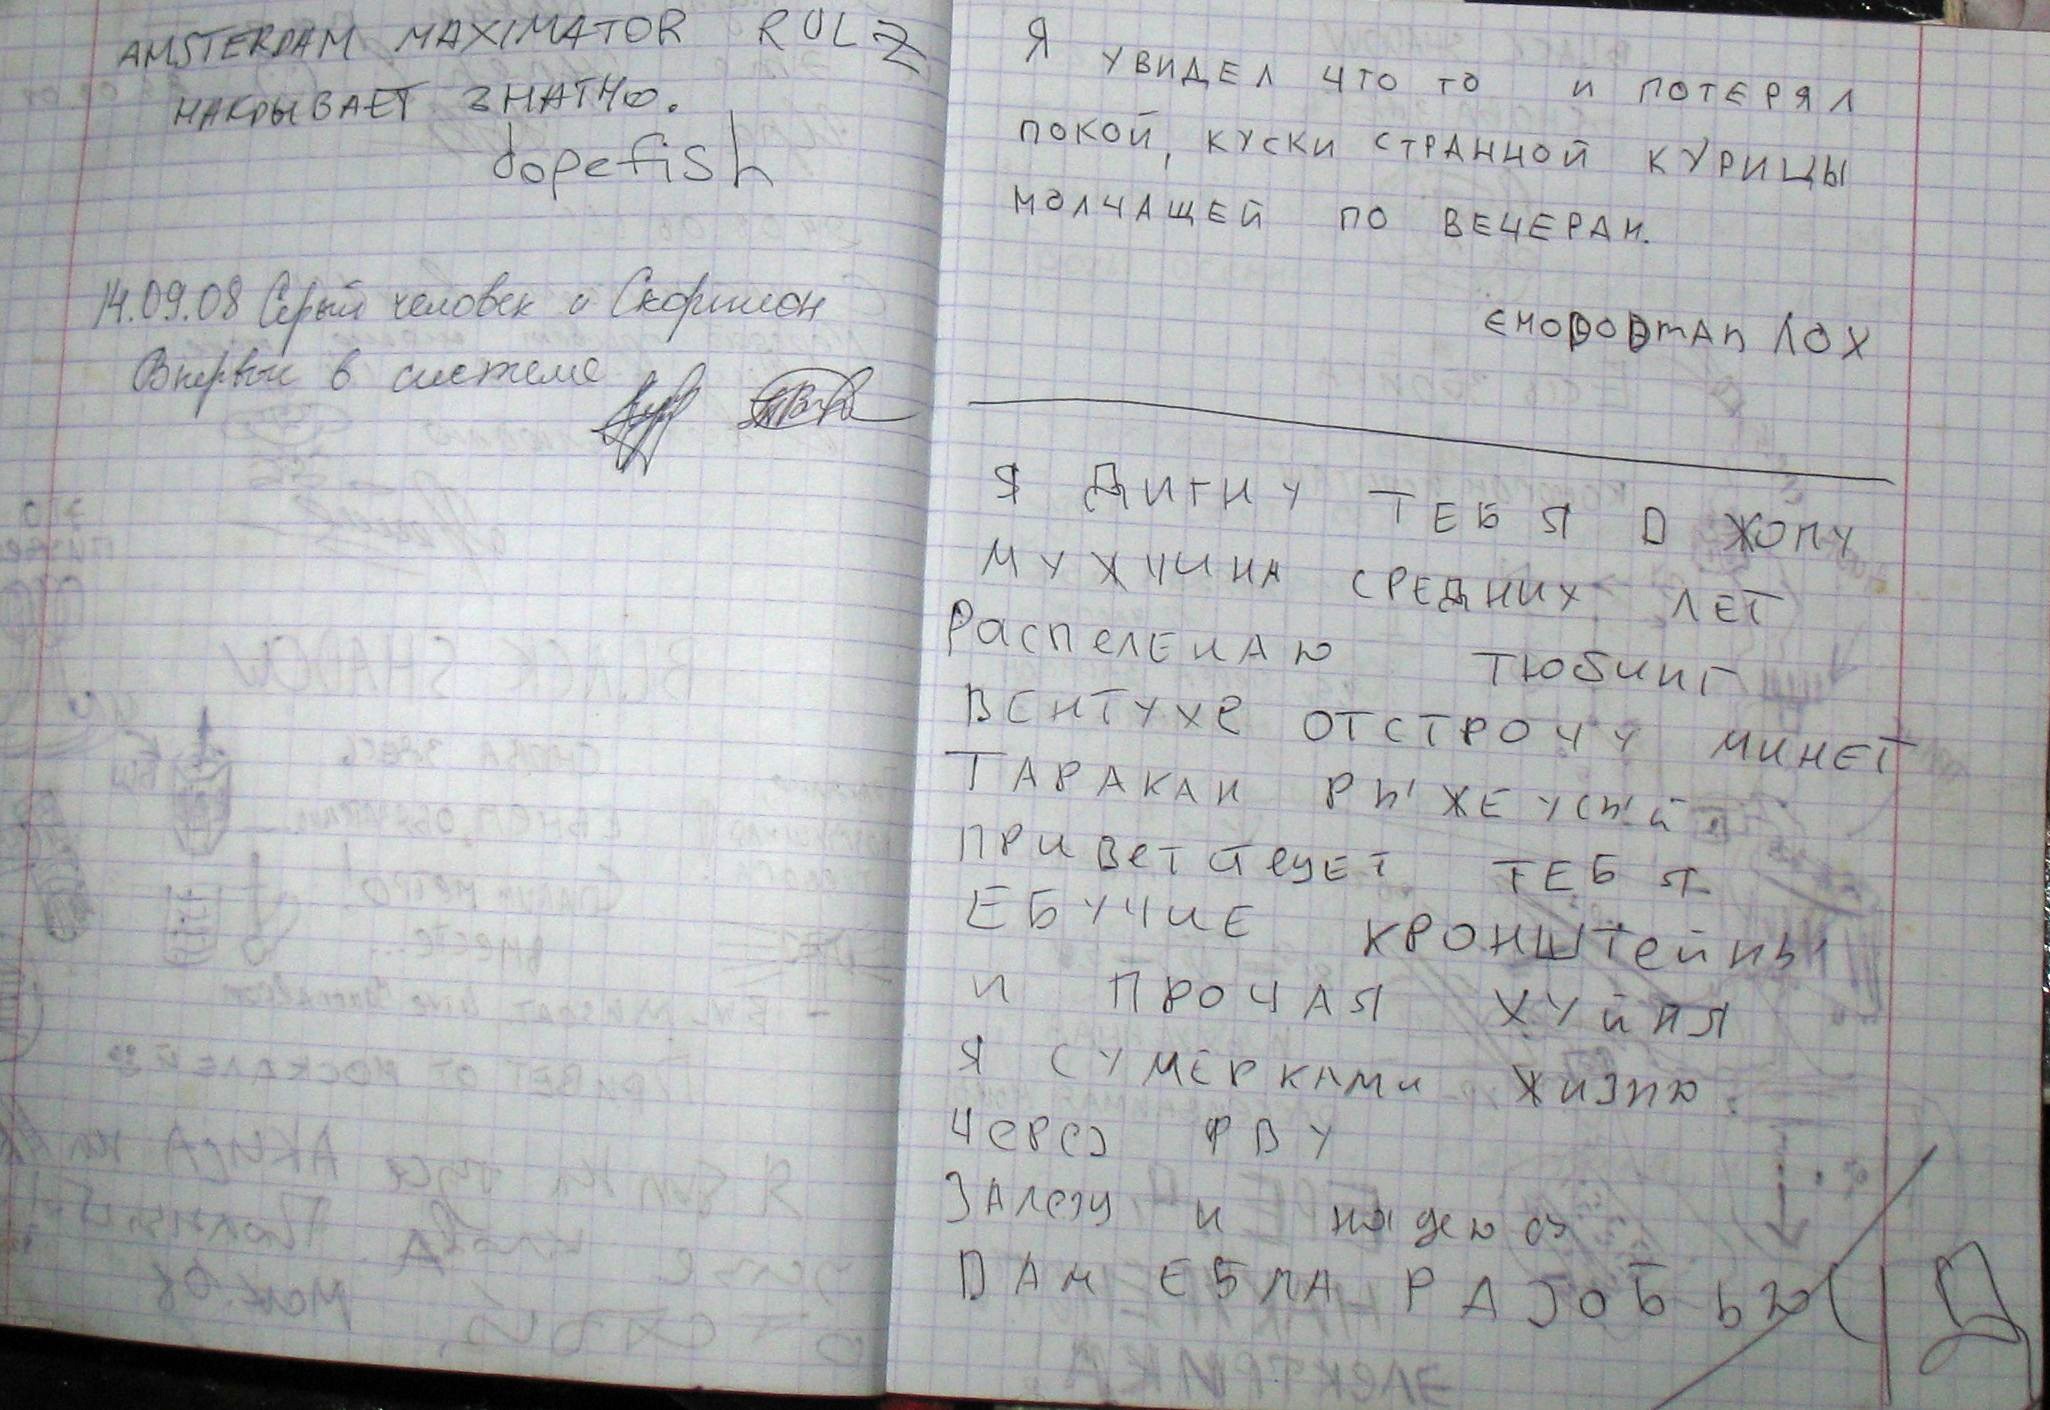 AMSTERDAM MAXIMATOR RULZ
НАКРЫВАЕТ ЗНАТНО.
dopefish
14.09.08 Серый человек и Скорпион
Впервые в системе
Я УВИДЕЛ ЧТО ТО И ПОТЕРЯЛ
ПОКОЙ, КУСКИ СТРАННОЙ КУРИЦЫ
МОЛЧАЩЕЙ ПО ВЕЧЕРАМ.
ЛОХ
Я ДИГНУ ТЕБЯ В ЖОПУ
МУЖЧИНА СРЕДНИХ ЛЕТ
РАСПЕЛЕНАЮ ТЮБИНГ
ВЕНТУХЕ ОТСТРОЧУ МИНЕТ
ТАРАКАН РЫЖЕУСЫЙ
ПРИВЕТСТВУЕТ ТЕБЯ
ЕБУЧИЕ КРОНШТЕЙНЫ
И ПРОЧАЯ ХУЙНЯ
Я СУМЕРКАМИ ЖИЗНЮ
ЧЕРЕЗ ФВУ
ЗАЛЕЗУ И НАДЕЮСЬ
ВАМ ЕБЛА РАЗОБЬЮ